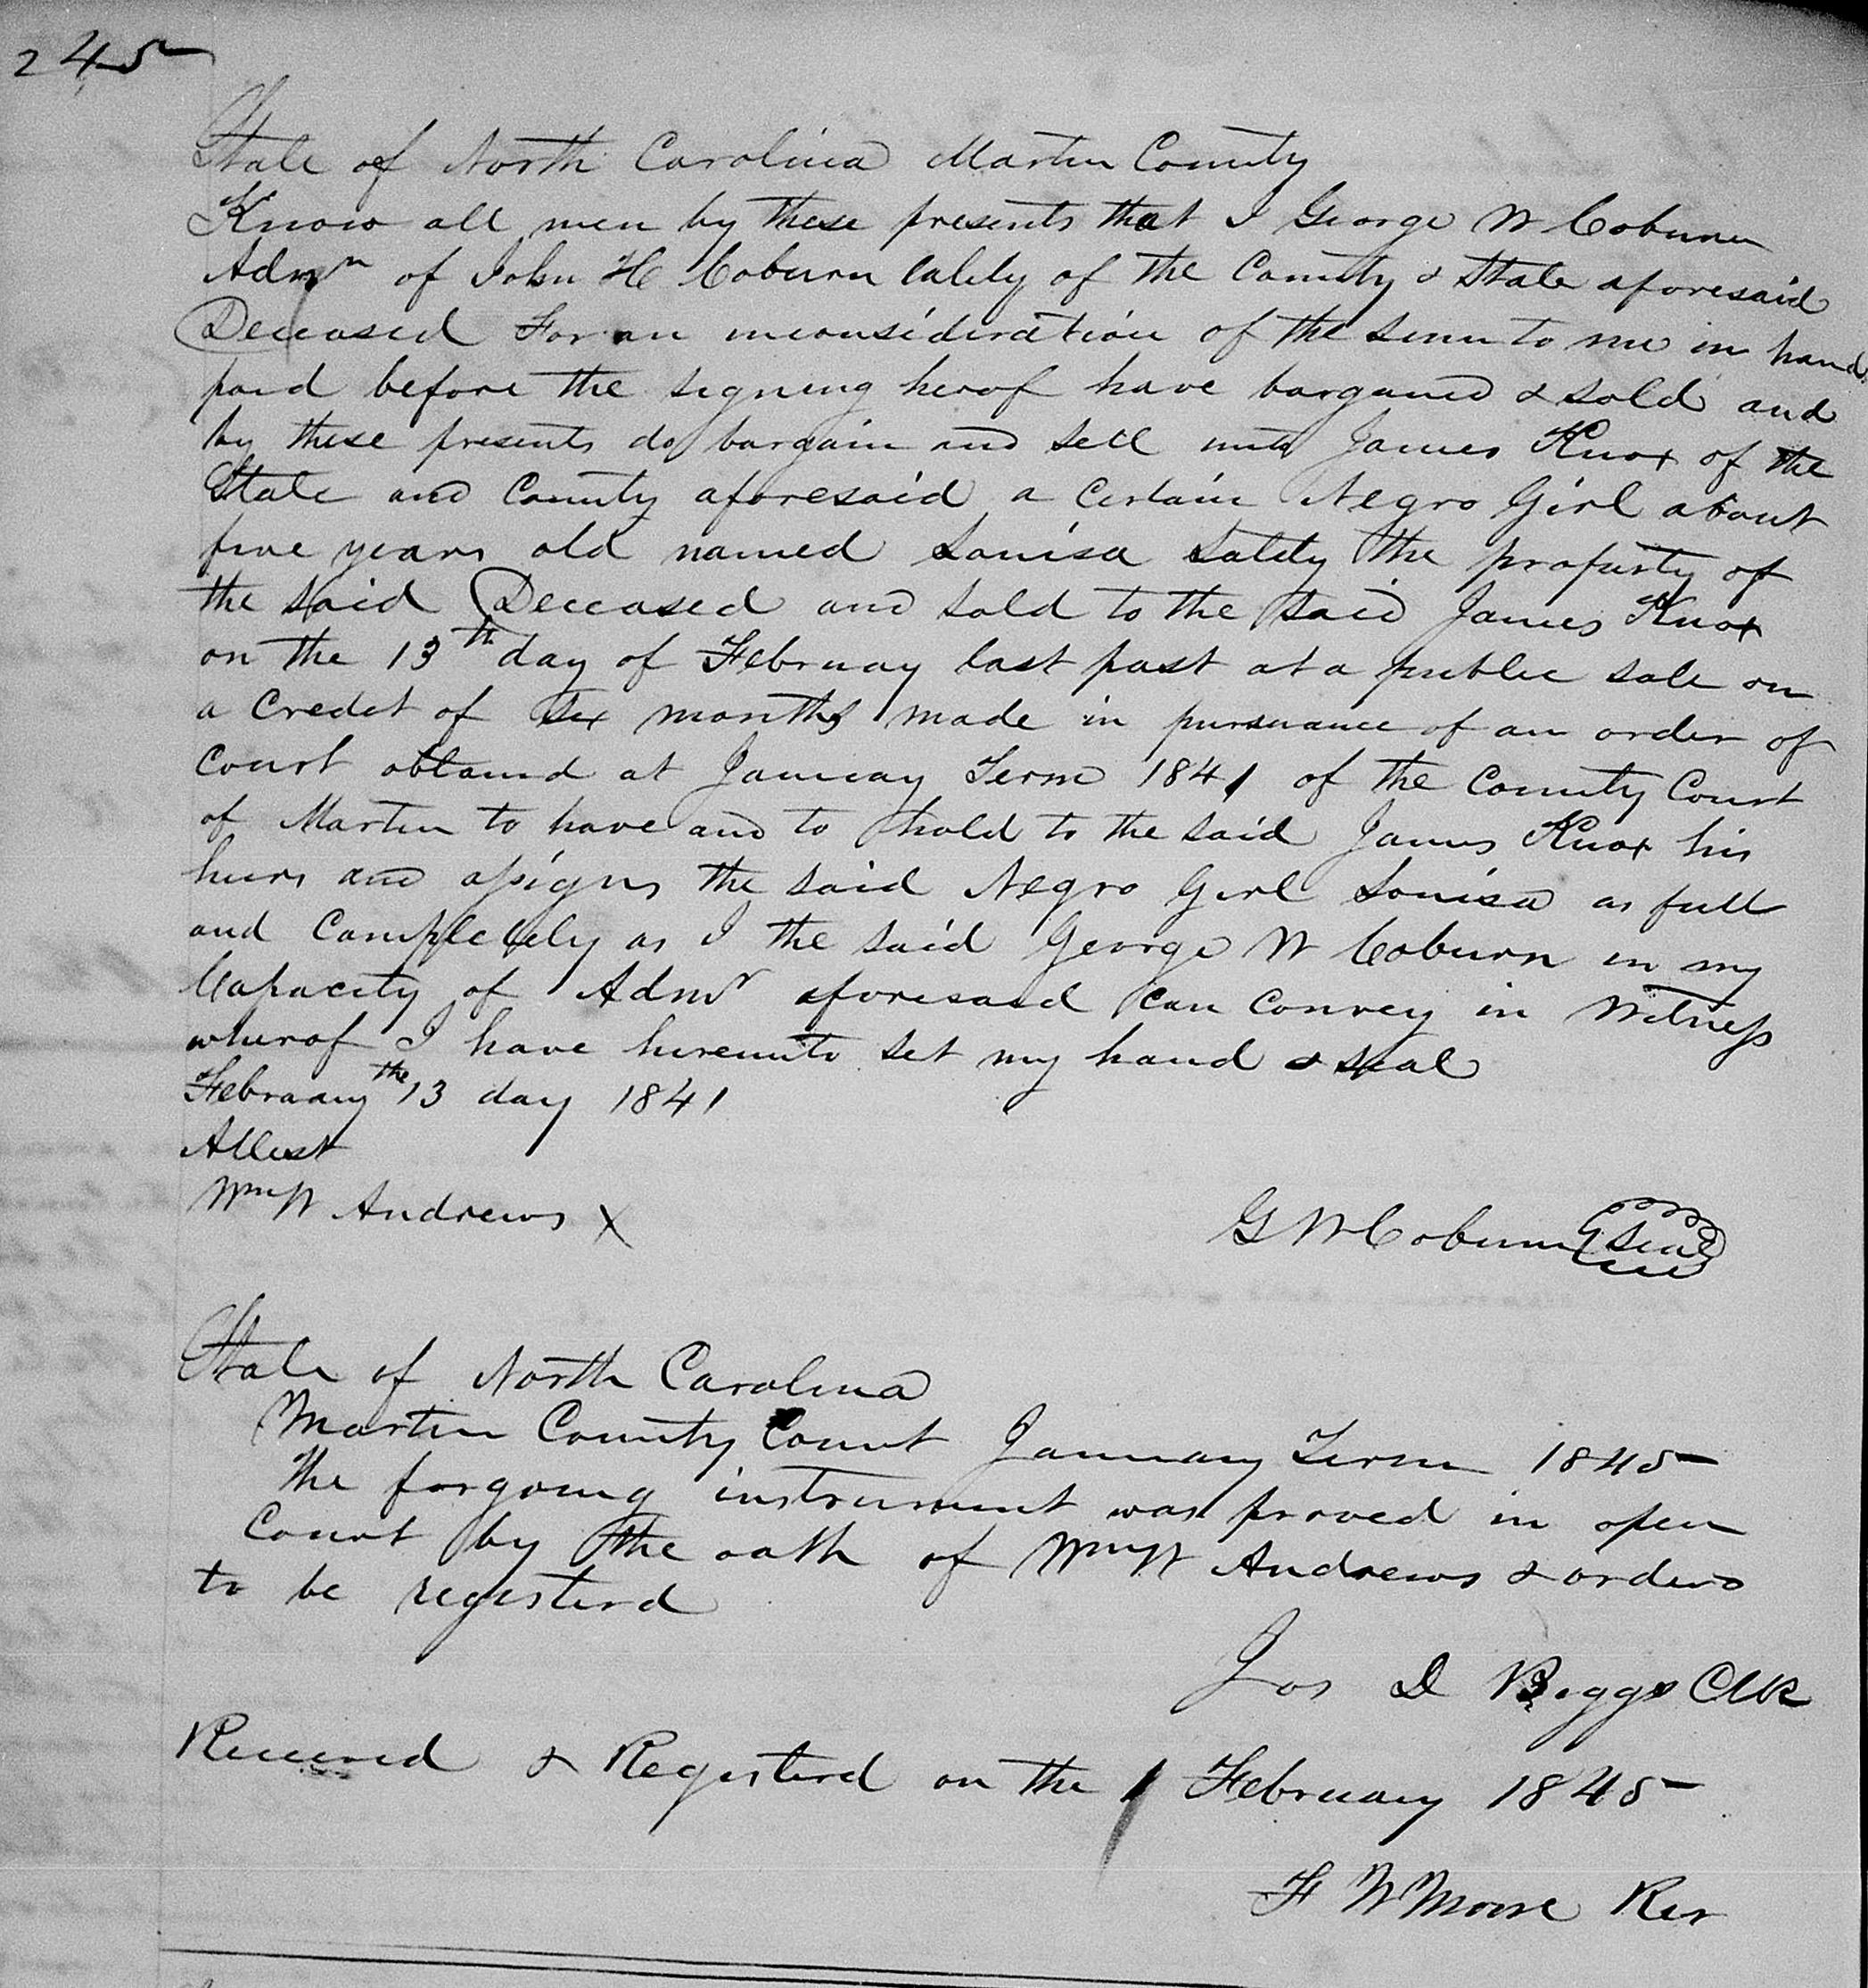 245
State of North Carolina Martin County
Know all men by these presents that I George W Coburn
Admr of John H Coburn lately of the County & State aforesaid
Deceased For an inconsideration of the sum to me in hand
paid before the signing herof have bargained & sold and
by these presents do bargain and sell unto James Knox of the
State and County aforesaid a Certain Negro Girl about
five years old named Louisa Lately the property of
the said Deceased and sold to the said James Knox
on the 13th day of Februay last past at a public sale on
a Credet of six months made in pursuance of an order of
Court obtaind at Januay Term 1841 of the County Court
of Martin to have and to hold to the said James Knox his
heirs and assigns the said Negro Girl Louisa as full
and Completely as I the said George W Coburn in my
Capacity of Admr aforesaid Can Convey in Witness
wherof I have hereunto set my hand & seal
February the 13 day 1841
Attest
Wm W Andrews X
G W Coburn Seal
State of North Carolina
Martin County Court January Term 1845
the forgoing instrument was proved in open
Court by the oath of Wm W Andrews & orderd
to be registerd
Jos D Biggs Clk
Received & Registerd on the 1 February 1845
F W Moore Rer